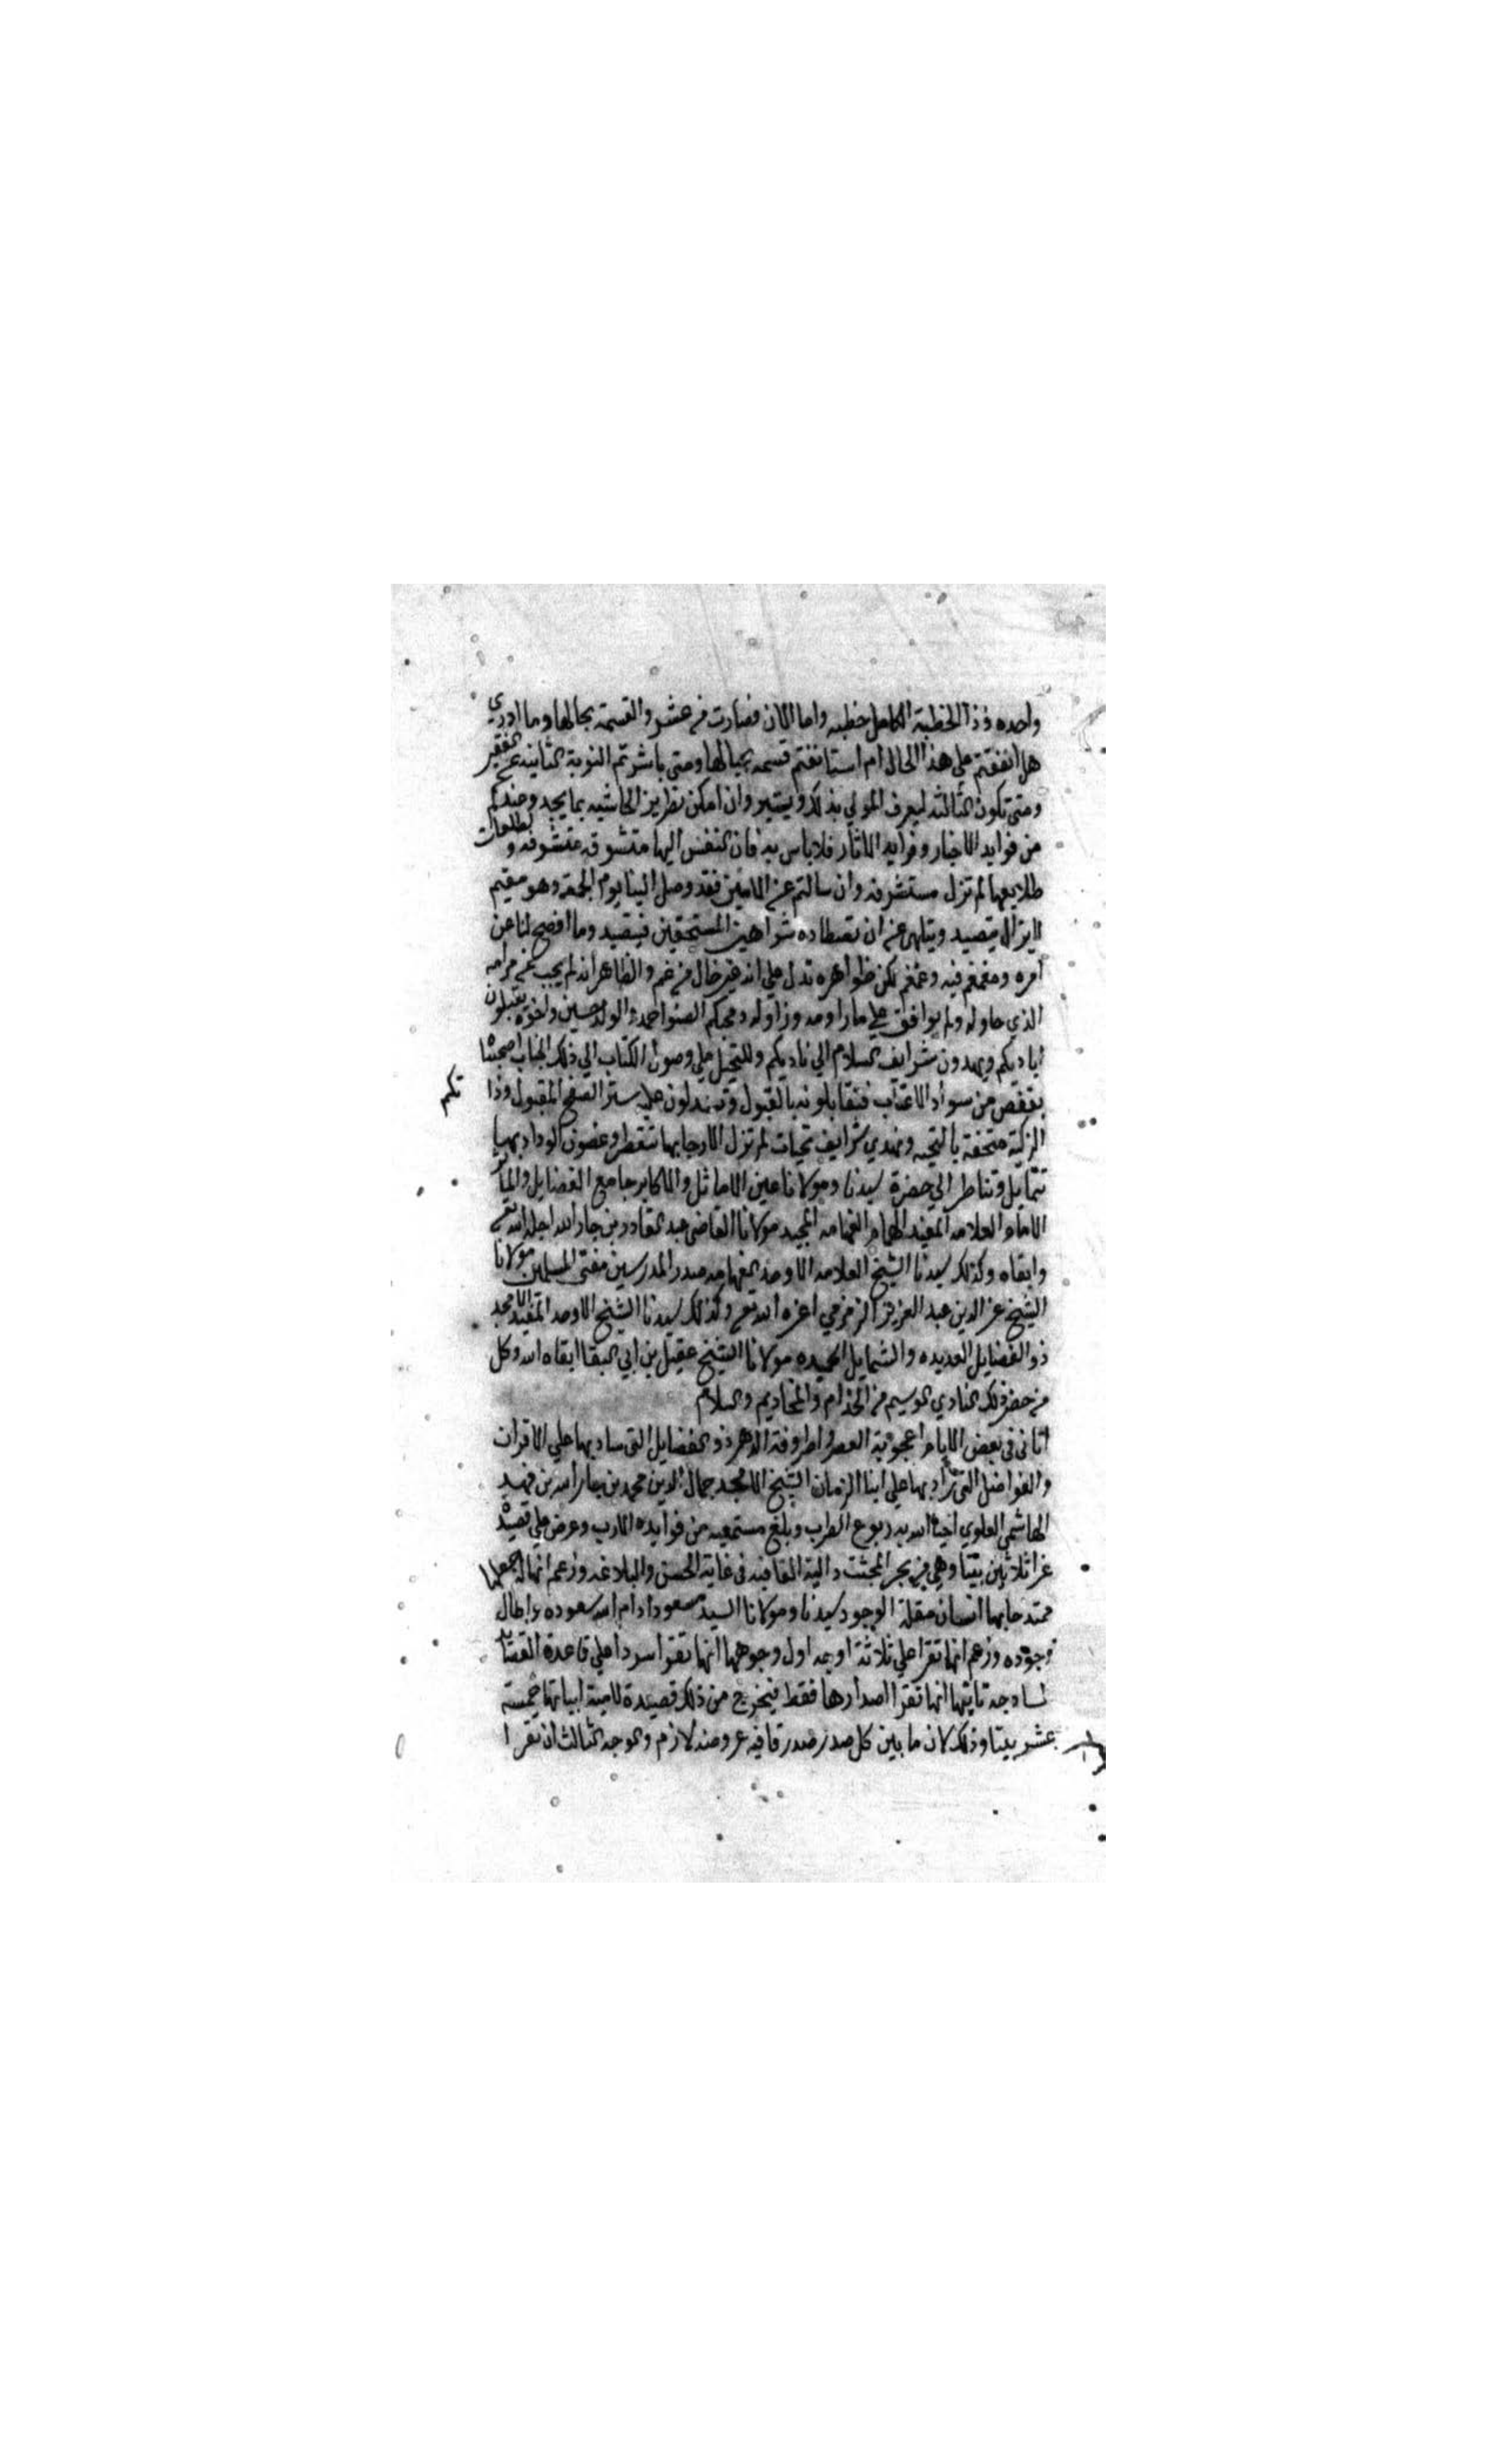 واحده وذا الخطبة الكامل خطبه واما الان فصارت في عشر والقسمة بحالها وما ادري
هل اتفقتم علي هذا الحال ام استانفتم قسمه بحيالها ومتي باشرتم النوبة الثانيه عن الفقير
ومتي تكون الثالثه ليعرف المولي بذلك ويستنير وان امكن تطريز الحاشيه بما يجد وعندكم
من فوايد الاخبار وفرايد الاثار فلاباس به فان النفس اليها متشوقه متشوفه ولطلعات
طلايعها لم تزل مستشرفه وان سالتم عن الامين فقد وصل الينا يوم الجمعه وهو مقيم
لايزال يتصيد ويتلهي عن ان تصطاده شواهين المستحقين فيتصيد وما افصح لنا عن
امره ومغمغم فيه وغمغم لكن ظواهره تدل علي انه غير خال من غم والظاهر انه لم يجب عن مرامه
الذي حاوله ولم يوافق علي ما راومه وزاوله ومحبكم الصنو احمد والولد حسين واخوه يقبلون
اياديكم ويهدون شرايف السلام الي ناديكم وللتجيل علي وصول الكتاب الي ذلك الجناب اصحبناه
بقفص من سواد الاعناب فتقابلونه بالقبول وتسدلون عليه ستر الصفح المقبول وذا
تكم
الزكية متحفة بالتحيه ونهدي شرايف تحيات لم تزل الارجا بها تتعطر وغصون الوداد بهبا
تتمايل وتناطر الي حضرة سيدنا ومولانا عين الاماثل والاكابر جامع الفضايل والمآثر
الامام العلامه المفيد الهمام الفهامه المجيد مولانا القاضي عبد القادر بن جار الله اجله الله تعي
وابقاه وكذلك سيدنا الشيخ العلامه الاوحد الفهامه صدر المدرسين مفتي المسلمين مولانا
الشيخ عز الدين عبد العزيز الزمزمي اعزه الله تعي وكذلك سيدنا الشيخ الاوحد المفيد الامجد
ذو الفضايل العديده والشمايل الحميده مولانا الشيخ عقيل بن ابي البقا ابقاه الله وكل
من حضر ذلك النادي الوسيم من الخدام والمخاديم والسلام
اتاني في بعض الايام اعجوبة العصر واطروفة الدهر ذو الفضايل التي ساد بها علي الاقران
والفواضل التي زاد بها علي ابنا الزمان الشيخ الامجد جمال الدين محمد بن جار الله بن فهيد
الهاشمي العلوي احيا الله به ربوع الطرب وبلغ مستمعيه من فوايده الارب وعرض علي قصيدة
غرا ثلاثين بيتا وهي من بحر المجتث دالية القافيه في غاية الحسن والبلاغه وزعم انها له جعلها
ممتدحا بها انسان مقلة الوجود سيدنا ومولانا السيد مسعود ادام الله سعوده واطال
وجوده وزعم انها تقرا علي ثلاثة اوجه اول وجوهها انها تقرا سردا علي قاعدة القصايد
ثانيها انها تقرا اصدارها فقط فيخرج من ذلك قصيدة لامية ابياتها خمسة
عشر بيتا وذلك لان ما بين كل صدر صدر قافيه عروضه لازم والوجه الثالث ان تقرا